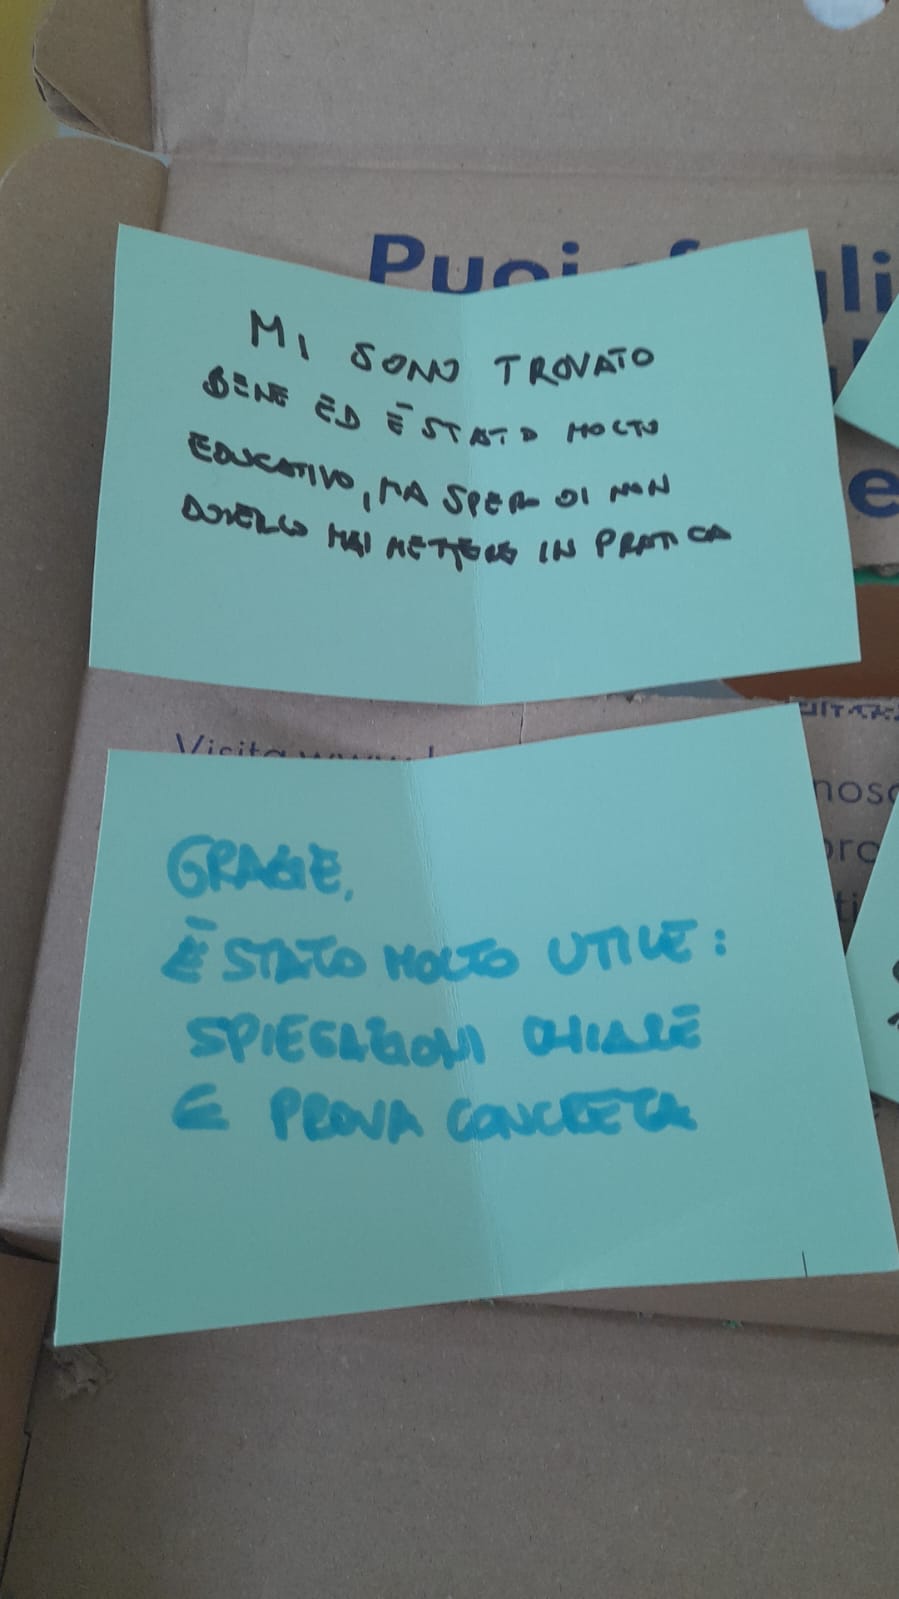 Puoi
gli
MI SONO TROVATO
BENE ED È STATO MOLTO
EDUCATIVO, MA SPERO DI NON
DOVERLO MAI METTERE IN PRATICA
e
Visita www.
nosc
pro
GRAZIE,
È STATO MOLTO UTILE:
SPIEGAZIONI CHIARE
E PROVA CONCRETA